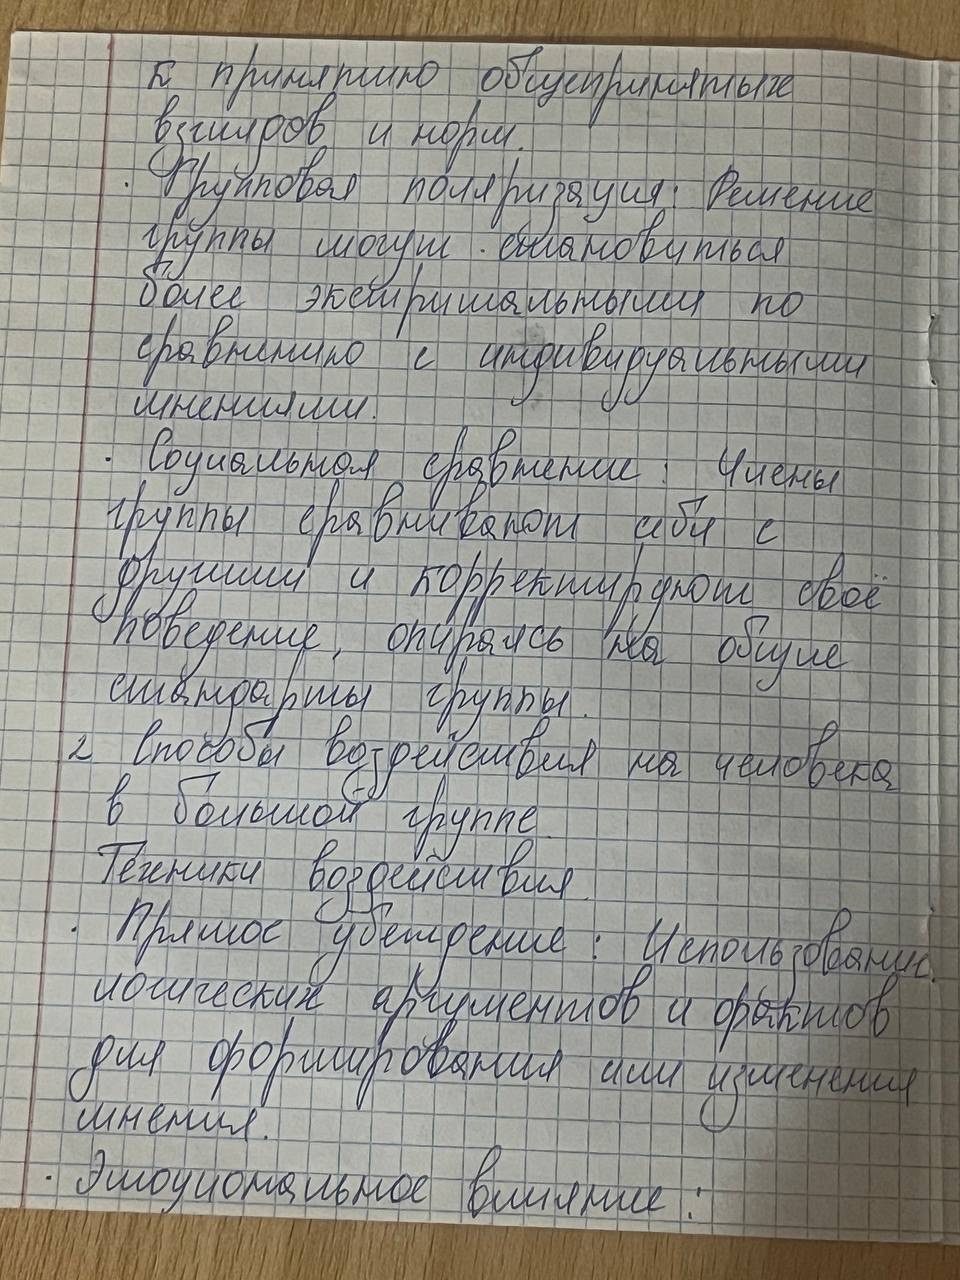 к принятию общепринятых
взглядов и норм.
· Групповая поляризация: Решение
группы могут становиться
более экстримальными по
сравнению с индивидуальными
мнениями.
· Социальная сравнение: Члены
группы сравнивают себя с
другими и корректируют своё
поведение, опираясь на общие
стандарты группы.
2 Способы воздействия на человека
в большой группе.
Техники воздействия.
· Прямое убеждение: Использование
логических аргументов и фактов
для формирования или изменения
мнения.
· Эмоциональное влияние: